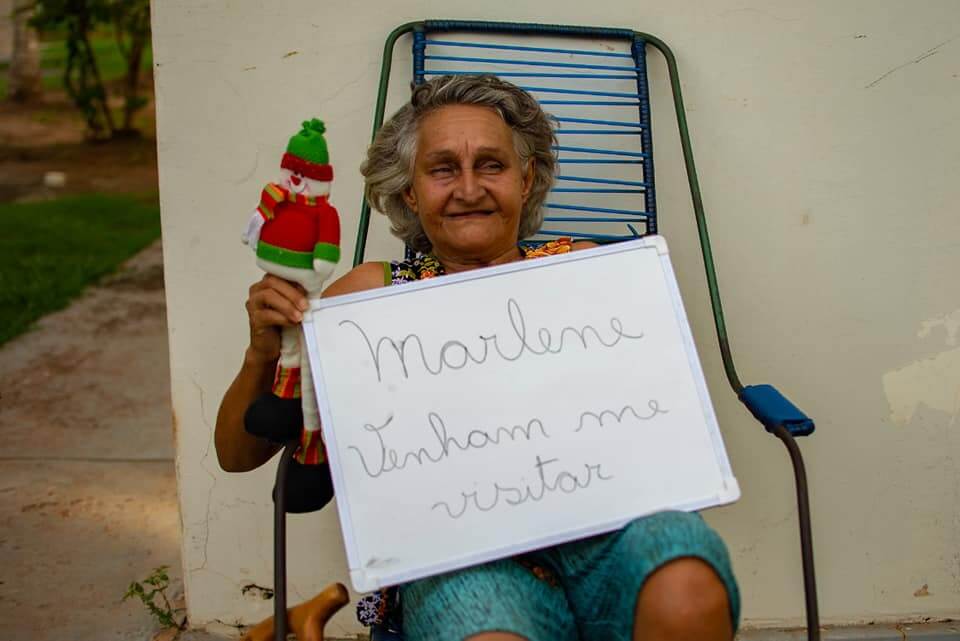 Marlene
Venham me
visitar